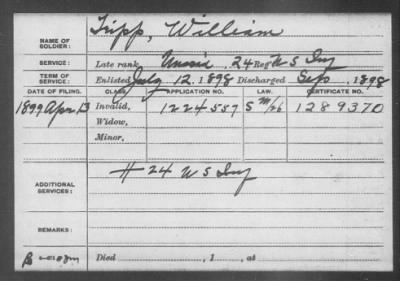 NAME OF SOLDIER: Tripp, William
SERVICE: Late rank, Unasid. 24 Reg't U S Inf
TERM OF SERVICE: Enlisted July 12, 1898 Discharged Sep, 1898
DATE OF FILING. CLASS. APPLICATION NO. LAW. CERTIFICATE NO.
1899 Apr. 13 Invalid, 1224559 1289370
Widow,
Minor,
ADDITIONAL SERVICES: # 24 U S Inf
REMARKS:
Died , 1 , at